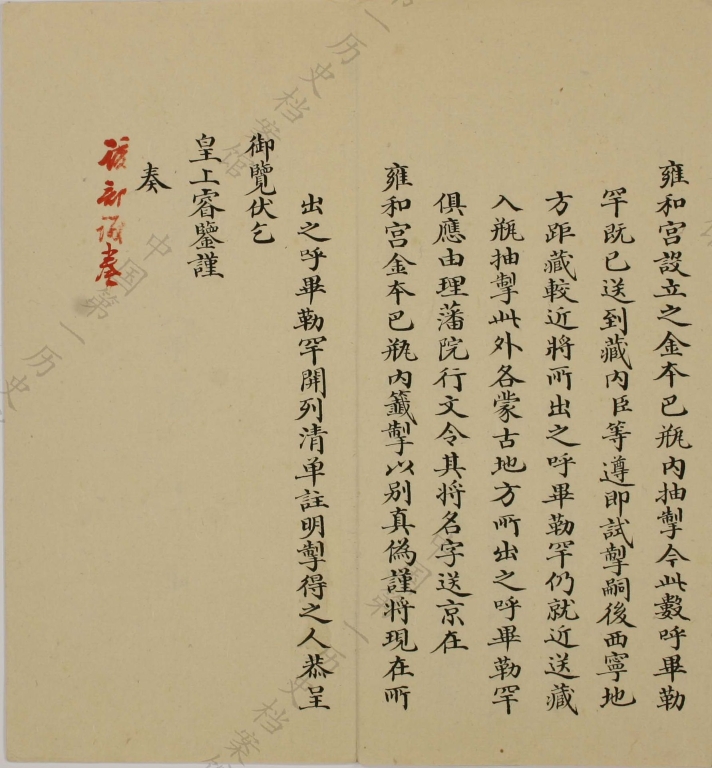 雍和宫設立之金本巴瓶内抽掣今此數呼畢勒
罕既已送到藏内臣等遵即試掣嗣後西寧地
方距藏較近將所出之呼畢勒罕仍就近送藏
入瓶抽掣此外各蒙古地方所出之呼畢勒罕
俱應由理藩院行文令其將名字送京在
雍和宫金本巴瓶内籤掣以别真偽謹將現在所
出之呼畢勒罕開列清单註明掣得之人恭呈
御覽伏乞
皇上睿鑒謹
奏
中国第一历史档案馆